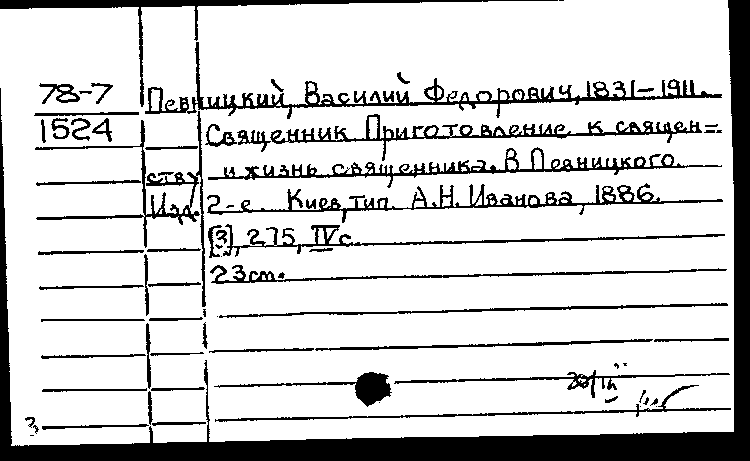 78-7 Певницкий, Василий Федорович, 1831-1911.
1524 Священник Приготовление к священ=
ству и жизнь священника. В Певницкого.
Изд. 2-е. Киев, тип. А.Н. Иванова, 1886.
[3], 275, IV с.
23 см.
3